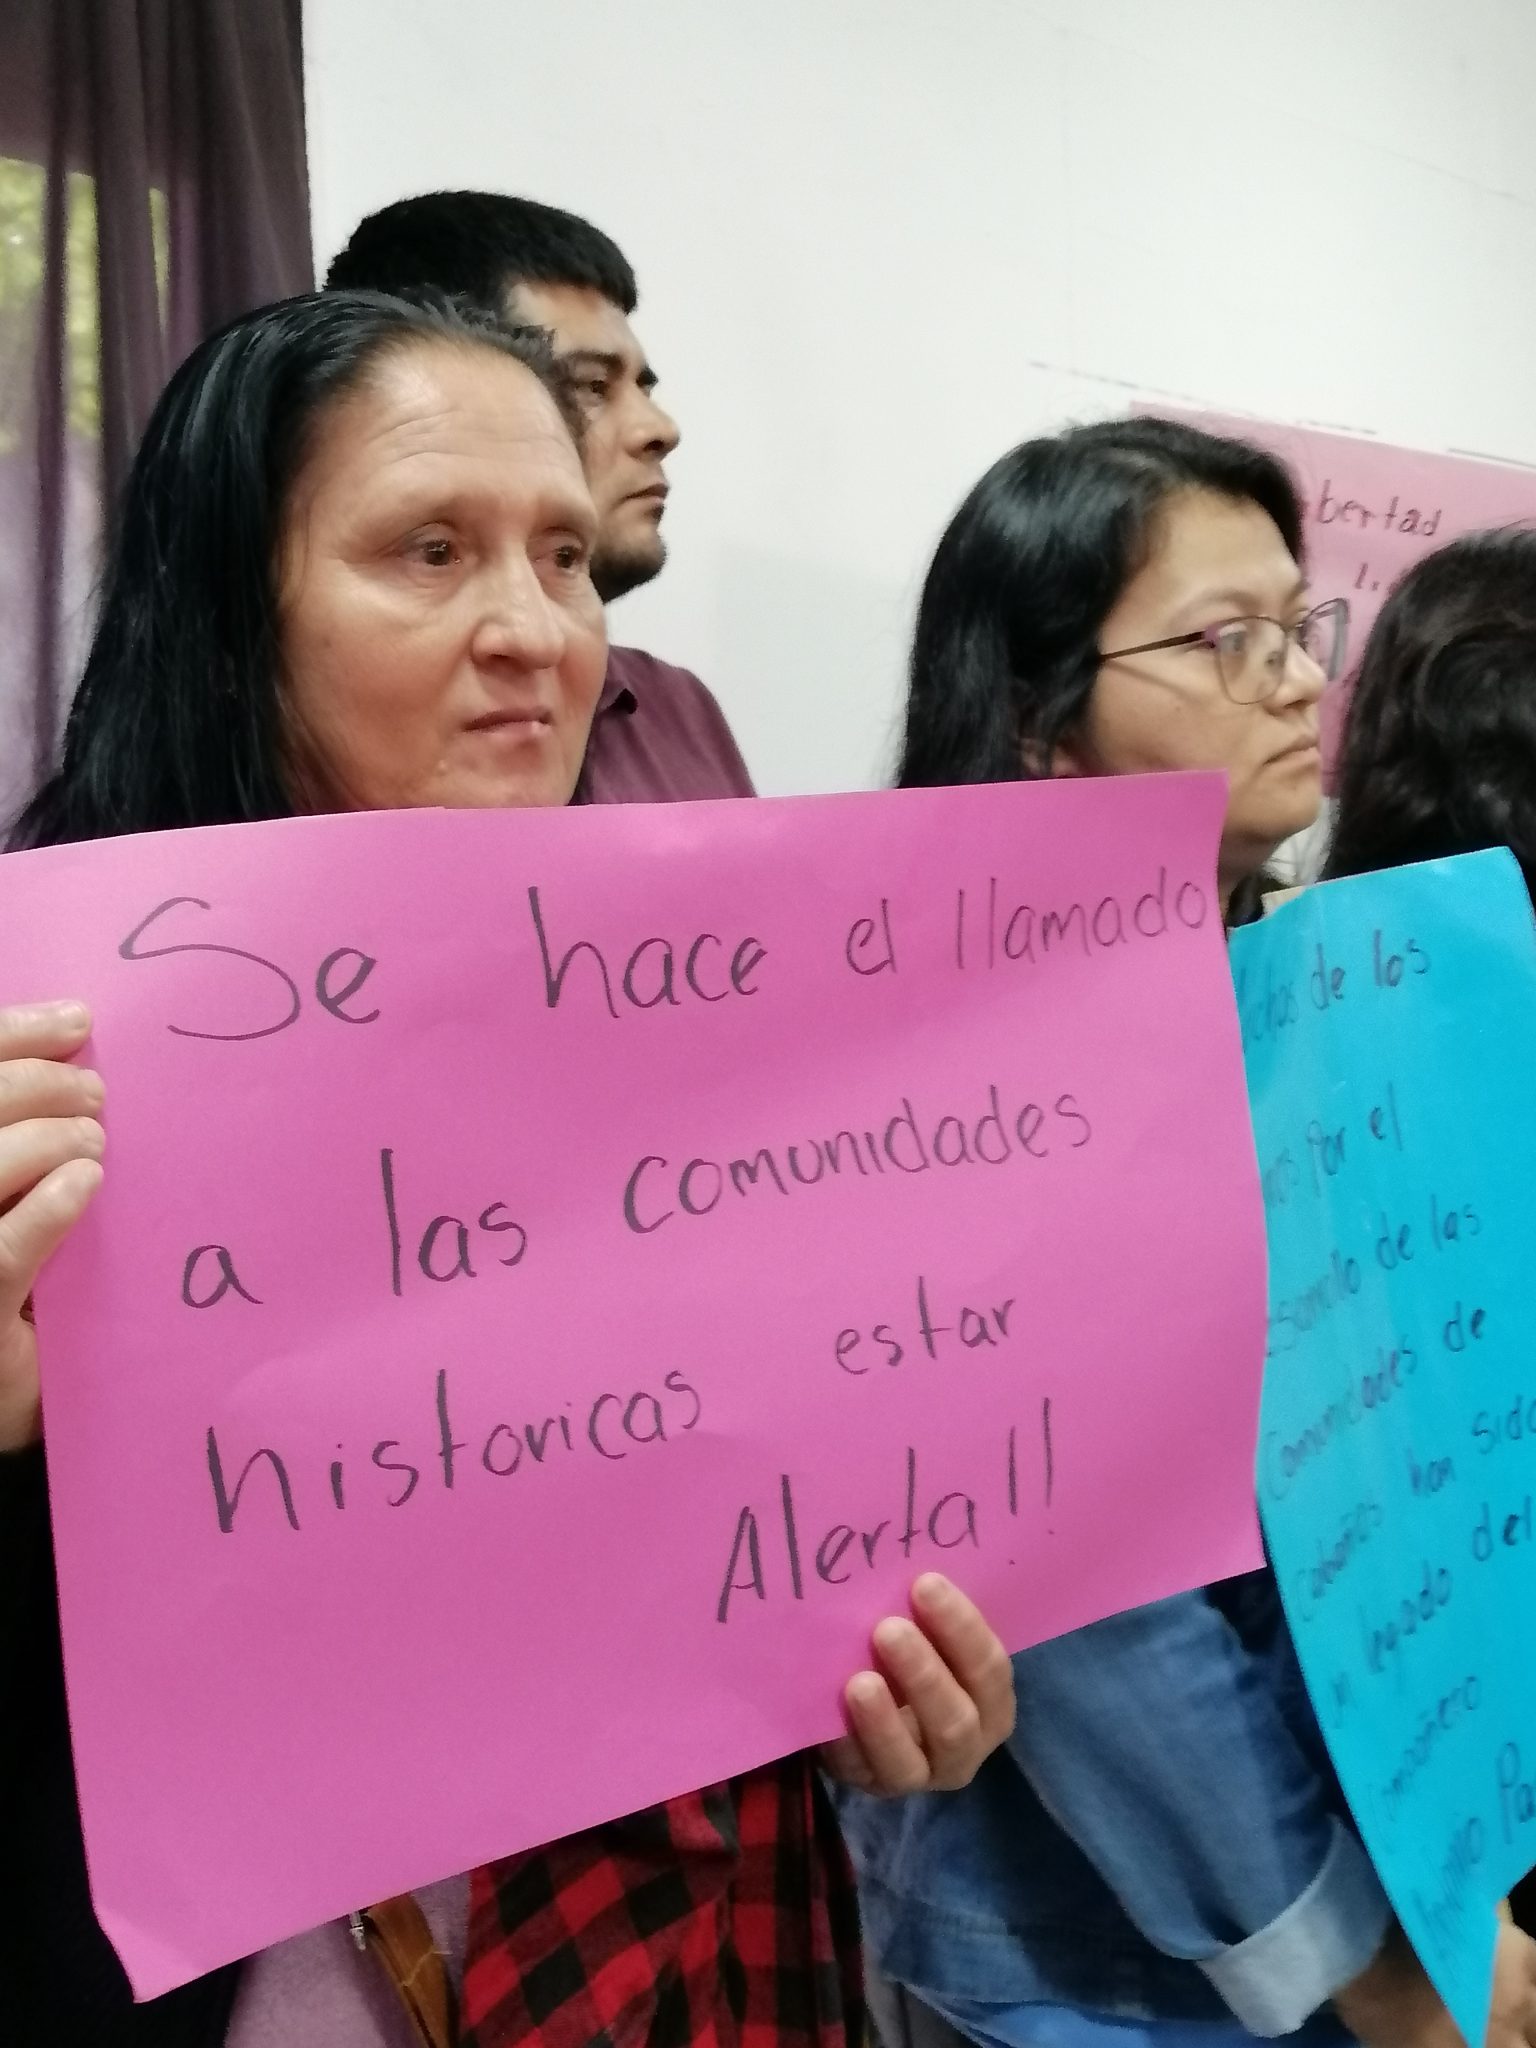 Se hace el llamado
a las comunidades
historicas estar
Alerta!!
bertad
de los
Por el
de las
Comunidades de
Cabañas han sido
un legado del
Compañero